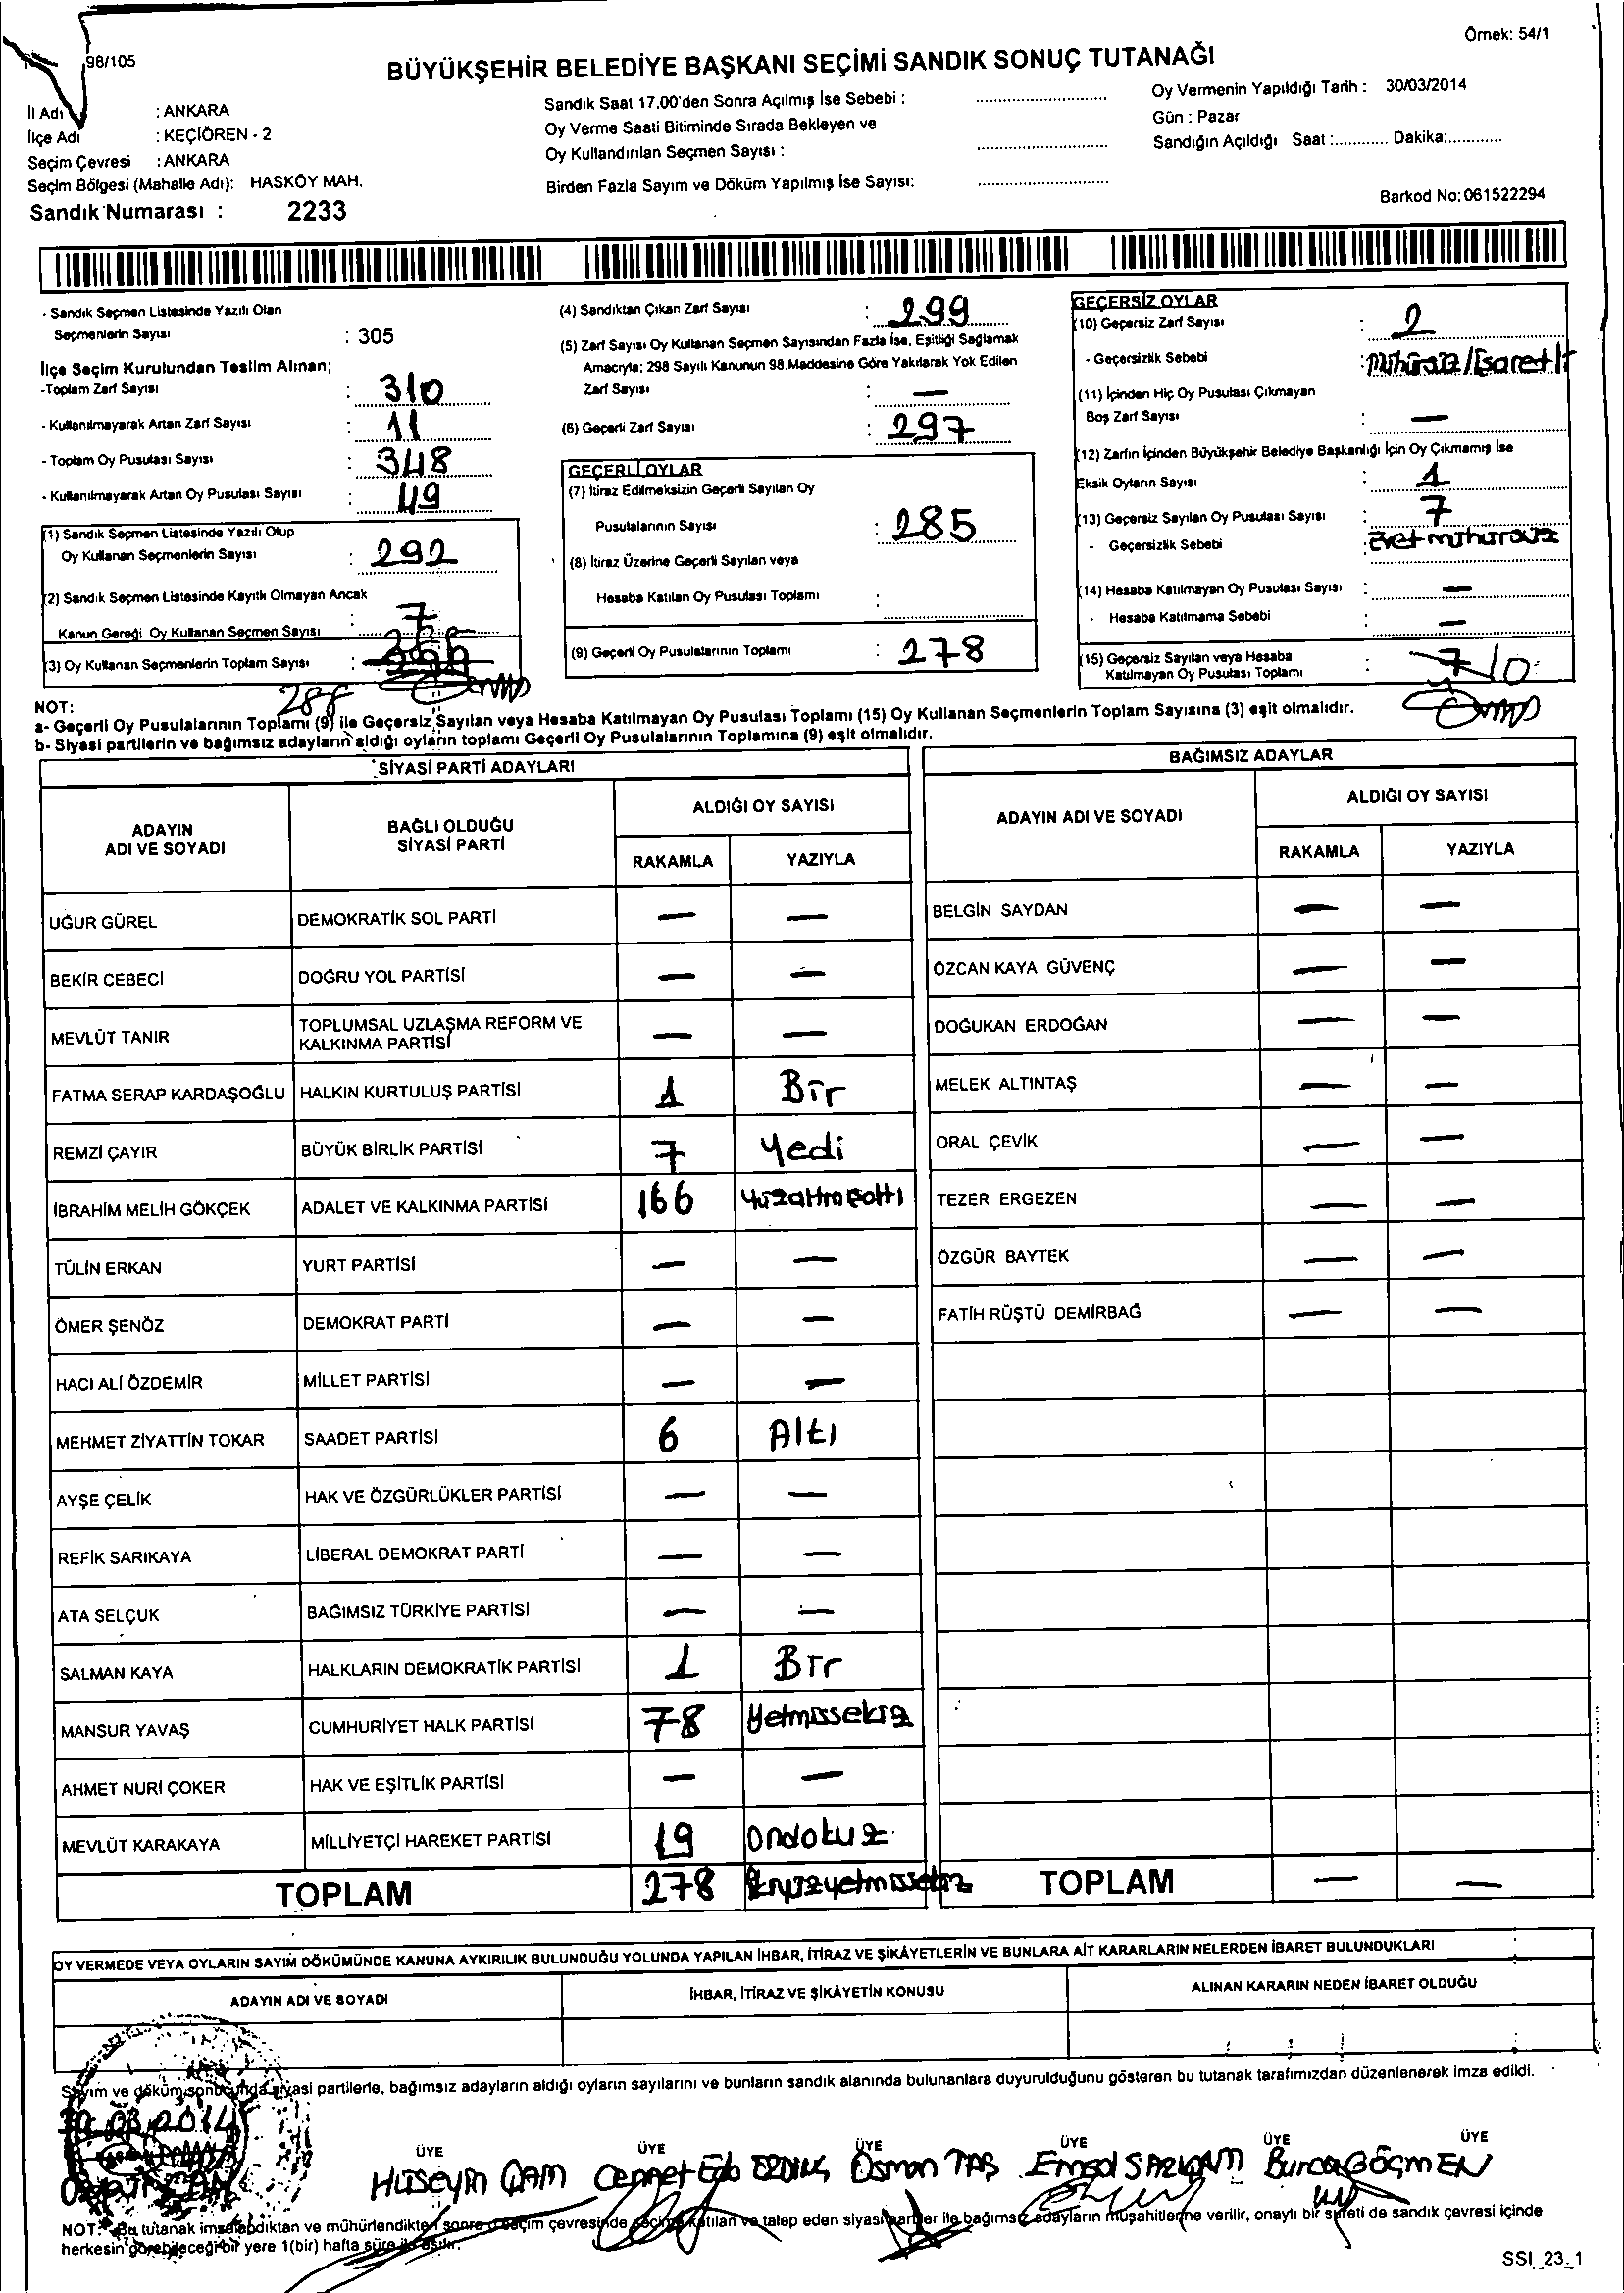 Örnek: 54/1
98/105
BÜYÜKŞEHİR BELEDİYE BAŞKANI SEÇİMİ SANDIK SONUÇ TUTANAĞI
İl Adı : ANKARA
İlçe Adı : KEÇİÖREN - 2
Seçim Çevresi : ANKARA
Seçim Bölgesi (Mahalle Adı): HASKÖY MAH.
Sandık Numarası : 2233
Sandık Saat 17.00'den Sonra Açılmış İse Sebebi :
Oy Verme Saati Bitiminde Sırada Bekleyen ve
Oy Kullandırılan Seçmen Sayısı :
Birden Fazla Sayım ve Döküm Yapılmış İse Sayısı:
Oy Vermenin Yapıldığı Tarih : 30/03/2014
Gün : Pazar
Sandığın Açıldığı Saat :............ Dakika:............
Barkod No: 061522294
- Sandık Seçmen Listesinde Yazılı Olan
Seçmenlerin Sayısı : 305
İlçe Seçim Kurulundan Teslim Alınan;
-Toplam Zarf Sayısı : 310
- Kullanılmayarak Artan Zarf Sayısı : 11
- Toplam Oy Pusulası Sayısı : 348
- Kullanılmayarak Artan Oy Pusulası Sayısı : 49
(1) Sandık Seçmen Listesinde Yazılı Olup
Oy Kullanan Seçmenlerin Sayısı : 292
(2) Sandık Seçmen Listesinde Kayıtlı Olmayan Ancak
Kanun Gereği Oy Kullanan Seçmen Sayısı : 7
(3) Oy Kullanan Seçmenlerin Toplam Sayısı :
288
(4) Sandıktan Çıkan Zarf Sayısı : 299
(5) Zarf Sayısı Oy Kullanan Seçmen Sayısından Fazla İse, Eşitliği Sağlamak
Amacıyla; 298 Sayılı Kanunun 98.Maddesine Göre Yakılarak Yok Edilen
Zarf Sayısı : —
(6) Geçerli Zarf Sayısı : 297
GEÇERLİ OYLAR
(7) İtiraz Edilmeksizin Geçerli Sayılan Oy
Pusulalarının Sayısı : 285
(8) İtiraz Üzerine Geçerli Sayılan veya
Hesaba Katılan Oy Pusulası Toplamı :
(9) Geçerli Oy Pusulalarının Toplamı : 278
GEÇERSİZ OYLAR
(10) Geçersiz Zarf Sayısı : 2
- Geçersizlik Sebebi : Mühürsüz/İşaretli
(11) İçinden Hiç Oy Pusulası Çıkmayan
Boş Zarf Sayısı : —
(12) Zarfın İçinden Büyükşehir Belediye Başkanlığı İçin Oy Çıkmamış İse
Eksik Oyların Sayısı : 1
(13) Geçersiz Sayılan Oy Pusulası Sayısı : 7
- Geçersizlik Sebebi : Evet mührü
(14) Hesaba Katılmayan Oy Pusulası Sayısı : —
- Hesaba Katılmama Sebebi : —
(15) Geçersiz Sayılan veya Hesaba
Katılmayan Oy Pusulası Toplamı : 7 10
NOT:
a- Geçerli Oy Pusulalarının Toplamı (9) ile Geçersiz Sayılan veya Hesaba Katılmayan Oy Pusulası Toplamı (15) Oy Kullanan Seçmenlerin Toplam Sayısına (3) eşit olmalıdır.
b- Siyasi partilerin ve bağımsız adayların aldığı oyların toplamı Geçerli Oy Pusulalarının Toplamına (9) eşit olmalıdır.
SİYASİ PARTİ ADAYLARI
ADAYIN ADI VE SOYADI
BAĞLI OLDUĞU SİYASİ PARTİ
ALDIĞI OY SAYISI
RAKAMLA YAZIYLA
UĞUR GÜREL DEMOKRATİK SOL PARTİ — —
BEKİR CEBECİ DOĞRU YOL PARTİSİ — —
MEVLÜT TANIR TOPLUMSAL UZLAŞMA REFORM VE KALKINMA PARTİSİ — —
FATMA SERAP KARDAŞOĞLU HALKIN KURTULUŞ PARTİSİ 1 Bir
REMZİ ÇAYIR BÜYÜK BİRLİK PARTİSİ 7 Yedi
İBRAHİM MELİH GÖKÇEK ADALET VE KALKINMA PARTİSİ 166 Yüzaltmışaltı
TÜLİN ERKAN YURT PARTİSİ — —
ÖMER ŞENÖZ DEMOKRAT PARTİ — —
HACI ALİ ÖZDEMİR MİLLET PARTİSİ — —
MEHMET ZİYATTİN TOKAR SAADET PARTİSİ 6 Altı
AYŞE ÇELİK HAK VE ÖZGÜRLÜKLER PARTİSİ — —
REFİK SARIKAYA LİBERAL DEMOKRAT PARTİ — —
ATA SELÇUK BAĞIMSIZ TÜRKİYE PARTİSİ — —
SALMAN KAYA HALKLARIN DEMOKRATİK PARTİSİ 1 Bir
MANSUR YAVAŞ CUMHURİYET HALK PARTİSİ 78 Yetmissekiz
AHMET NURİ ÇOKER HAK VE EŞİTLİK PARTİSİ — —
MEVLÜT KARAKAYA MİLLİYETÇİ HAREKET PARTİSİ 19 Ondokuz
TOPLAM 278 İkiyüzyetmissekiz
BAĞIMSIZ ADAYLAR
ADAYIN ADI VE SOYADI
ALDIĞI OY SAYISI
RAKAMLA YAZIYLA
BELGİN SAYDAN — —
ÖZCAN KAYA GÜVENÇ — —
DOĞUKAN ERDOĞAN — —
MELEK ALTINTAŞ — —
ORAL ÇEVİK — —
TEZER ERGEZEN — —
ÖZGÜR BAYTEK — —
FATİH RÜŞTÜ DEMİRBAĞ — —
TOPLAM — —
OY VERMEDE VEYA OYLARIN SAYIM DÖKÜMÜNDE KANUNA AYKIRILIK BULUNDUĞU YOLUNDA YAPILAN İHBAR, İTİRAZ VE ŞİKÂYETLERİN VE BUNLARA AİT KARARLARIN NELERDEN İBARET BULUNDUKLARI
ADAYIN ADI VE SOYADI İHBAR, İTİRAZ VE ŞİKÂYETİN KONUSU ALINAN KARARIN NEDEN İBARET OLDUĞU
Sayım ve döküm sonucunda siyasi partilerle, bağımsız adayların aldığı oyların sayılarını ve bunların sandık alanında bulunanlara duyurulduğunu gösteren bu tutanak tarafımızdan düzenlenerek imza edildi.
30.03.2014
ÜYE ÜYE ÜYE ÜYE ÜYE ÜYE
Hüseyin ÇAM Cennet Osman TAŞ Burcu GÖÇMEN
NOT: Bu tutanak imzalandıktan ve mühürlendikten sonra o seçim çevresinde seçime katılan ve talep eden siyasi partiler ile bağımsız adayların müşahitlerine verilir, onaylı bir sureti de sandık çevresi içinde
herkesin görebileceği bir yere 1(bir) hafta süre ile asılır.
SSI_23_1